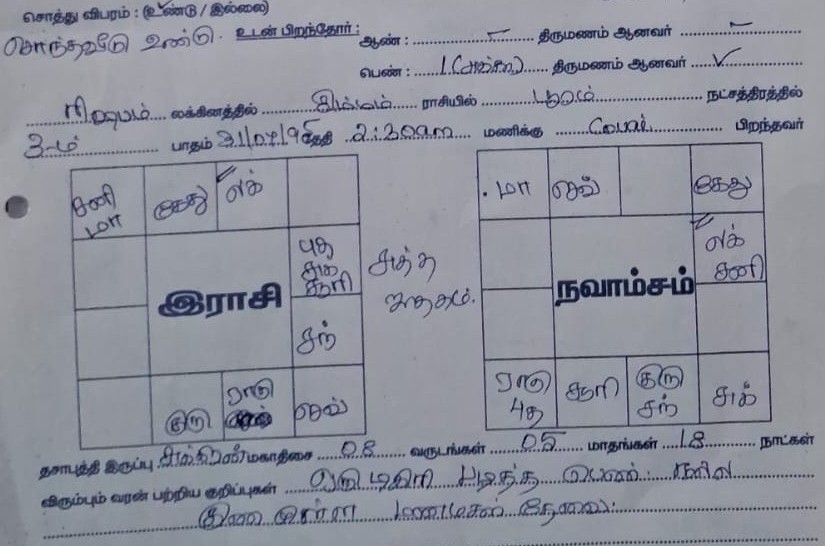 சொத்து விபரம் : (உண்டு / இல்லை)
சொந்தவீடு உண்டு. உடன் பிறந்தோர்: ஆண் : ........ – ........ திருமணம் ஆனவர் ........ – ........
பெண் : ....1(அக்கா).... திருமணம் ஆனவர் ....✓....
ரிஷபம் லக்கினத்தில் சிம்மம் ராசியில் பூரம் நட்சத்திரத்தில்
3-ம் பாதம் 31/07/95 தேதி 2:30am மணிக்கு பிறந்தவர்
சனி மா கேது லக்
புத சுக் சூரி
இராசி
சந்
குரு ராகு செவ்
சுத்த ஜாதகம்.
மா செவ் கேது
லக் சனி
நவாம்சம்
ராகு புத சூரி குரு சந் சுக்
தசாபுத்தி இருப்பு சுக்கிரன் மகாதிசை 08 வருடங்கள் 05 மாதங்கள் 18 நாட்கள்
விரும்பும் வரன் பற்றிய குறிப்புகள் ஒரு டிகிரி படித்த பெண். நல்ல
குணமுள்ள மணமகள் தேவை.